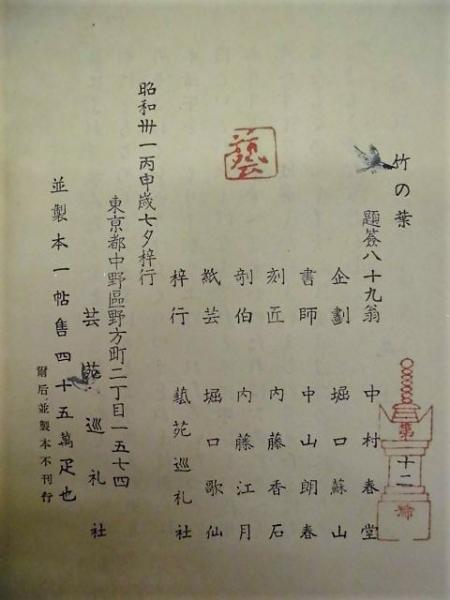 竹の葉
題簽八十九翁　中村春堂
企劃　堀口蘇山
書師　中山朗春
刻匠　内藤香石
剞伯　内藤江月
紙芸　堀口歌仙
梓行　藝苑巡礼社
藝
昭和卅一丙申歲七夕梓行
東京都中野區野方町二丁目一五七四
芸苑巡礼社
並製本一帖售四十五萬疋也
爾后並製本不刊行
第
十二